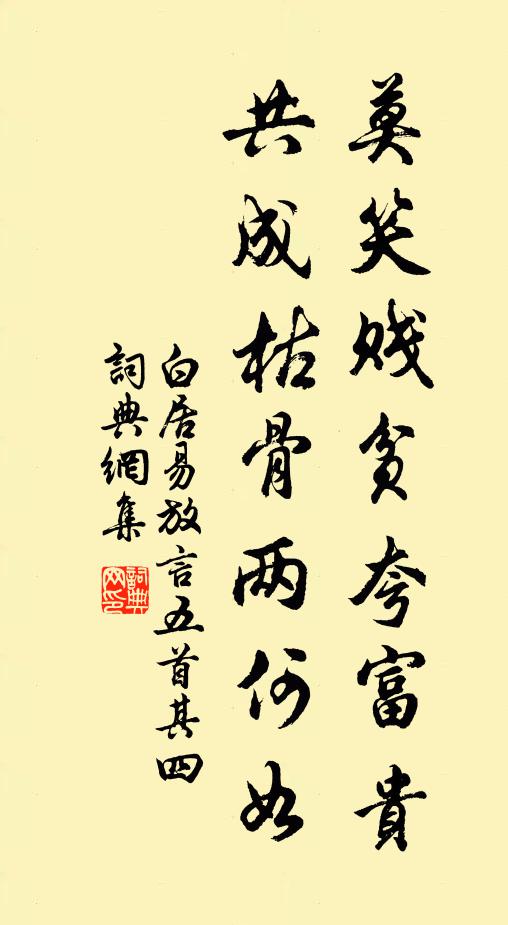 莫笑贱贫夸富貴
共成枯骨两何如
白居易放言五首其四
詞典網集
詞典網印